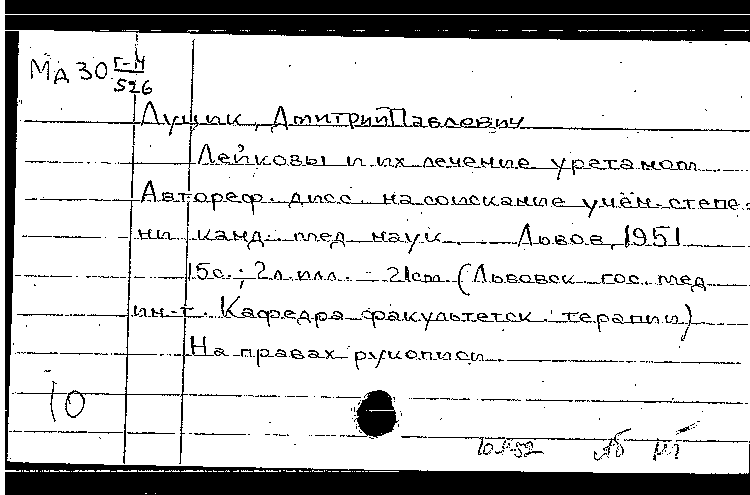 МД 30 Г-И
526
Лущик, Дмитрий Павлович
Лейкозы и их лечение уретаном
Автореф. дисс. на соискание учён. степе-
ни канд. мед. наук. Львов, 1951
15с.; 2л. илл. - 21cm (Львовск. гос. мед.
ин-т. Кафедра факультетск. терапии)
На правах рукописи
10